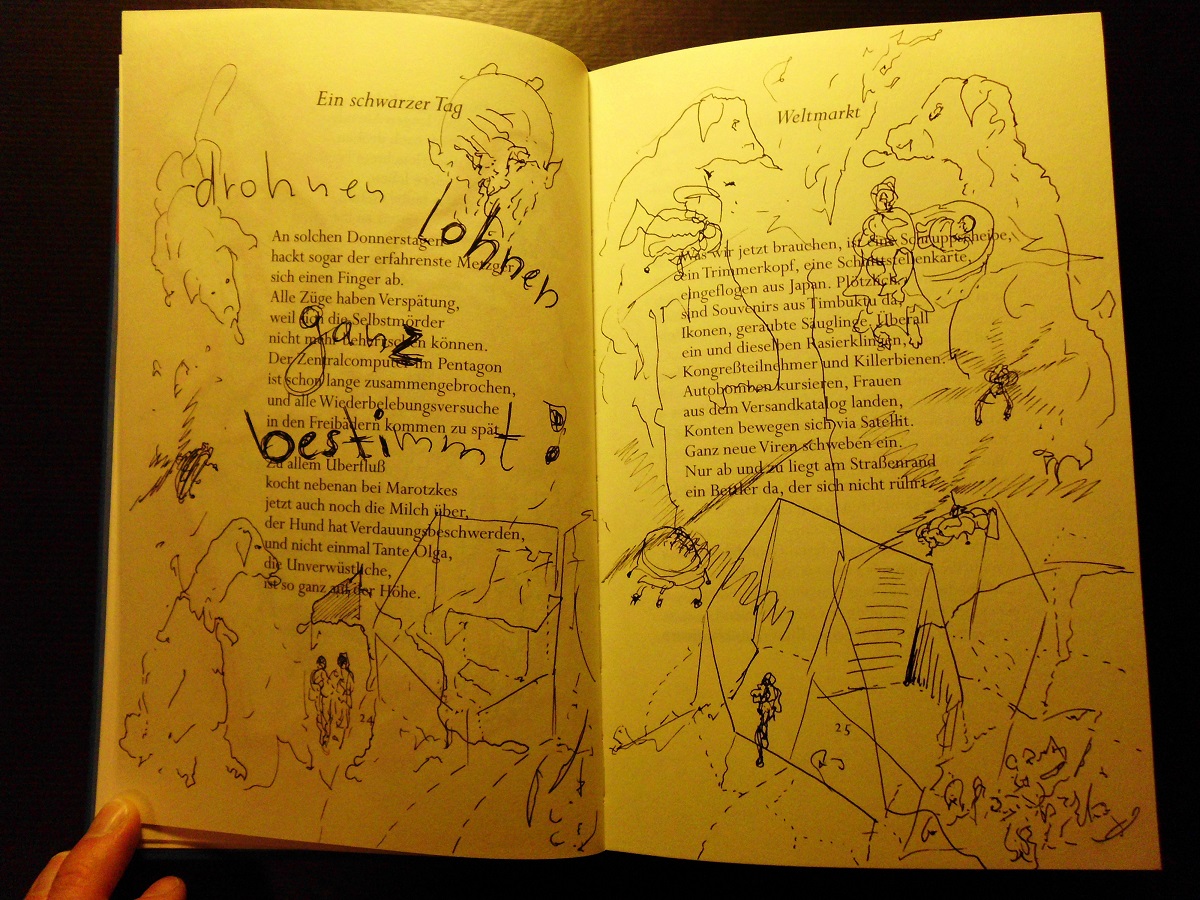 Ein schwarzer Tag
drohnen
lohnen
ganz
bestimmt!
An solchen Donnerstagen
hackt sogar der erfahrenste Metzger
sich einen Finger ab.
Alle Züge haben Verspätung,
weil sich die Selbstmörder
nicht mehr beherrschen können.
Der Zentralcomputer im Pentagon
ist schon lange zusammengebrochen,
und alle Wiederbelebungsversuche
in den Freibädern kommen zu spät.
Zu allem Überfluß
kocht nebenan bei Marotzkes
jetzt auch noch die Milch über,
der Hund hat Verdauungsbeschwerden,
und nicht einmal Tante Olga,
die Unverwüstliche,
ist so ganz auf der Höhe.
24
Weltmarkt
Was wir jetzt brauchen, ist eine Schruppscheibe,
ein Trimmerkopf, eine Schnittstellenkarte,
eingeflogen aus Japan. Plötzlich
sind Souvenirs aus Timbuktu da,
Ikonen, geraubte Säuglinge. Überall
ein und dieselben Rasierklingen,
Kongreßteilnehmer und Killerbienen.
Autobomben kursieren, Frauen
aus dem Versandkatalog landen,
Konten bewegen sich via Satellit.
Ganz neue Viren schweben ein.
Nur ab und zu liegt am Straßenrand
ein Bettler da, der sich nicht rührt.
25